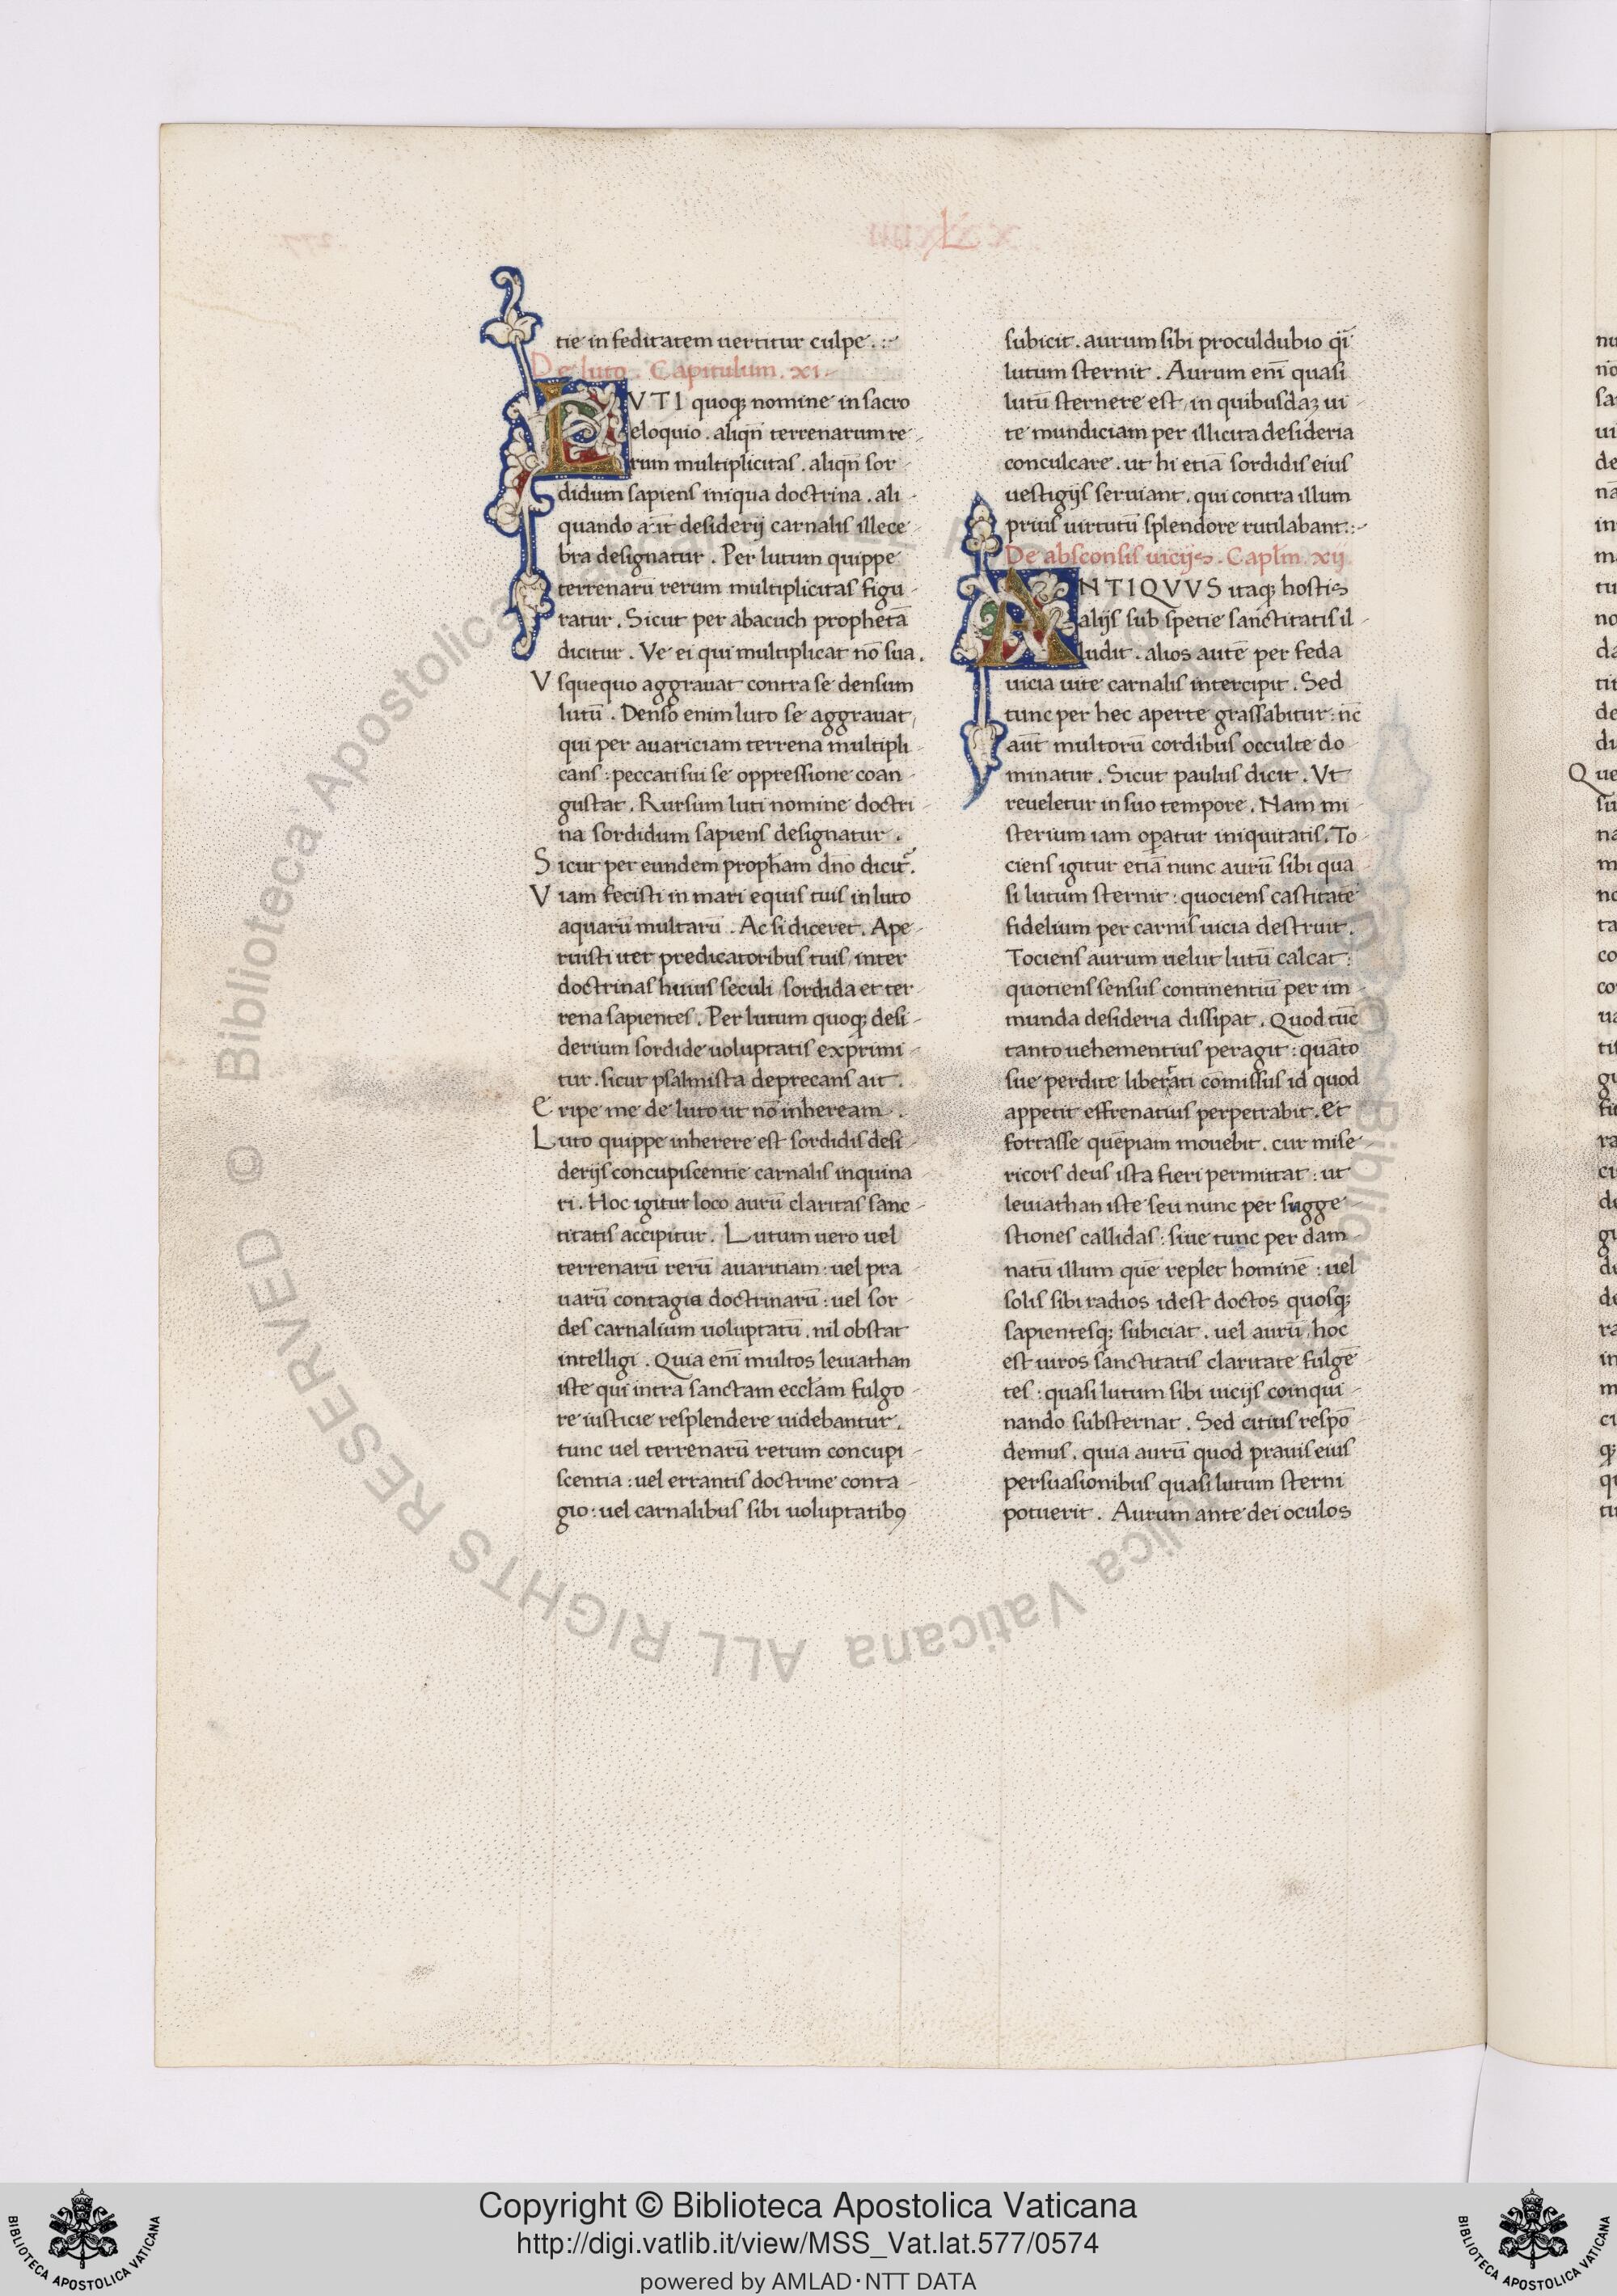 tie in feditatem uertitur culpe .:~
De luto . Capitulum . xi .
LVTI quoq; nomine in sacro
eloquio . aliqñ terrenarum re-
rum multiplicitas . aliqñ sor-
didum sapiens iniqua doctrina . ali-
quando aūt desiderij carnalis illece-
bra designatur . Per lutum quippe
terrenarū rerum multiplicitas figu-
ratur . Sicut per abacuch prophetā
dicitur . Ve ei qui multiplicat nō sua .
Vsquequo aggrauat contra se densum
lutū . Denso enim luto se aggrauat,
qui per auariciam terrena multipli-
cans : peccati sui se oppressione coan-
gustat . Rursum luti nomine doctri-
na sordidum sapiens designatur .
Sicut per eundem propham dño dicit᷑ .
Viam fecisti in mari equis tuis in luto
aquarū multarū . Ac si diceret . Ape-
ruisti iter predicatoribus tuis / inter
doctrinas huius seculi / sordida et ter-
rena sapientes . Per lutum quoq; desi-
derium sordide uoluptatis exprimi-
tur . sicut psalmista deprecans ait .
Eripe me de luto ut nō inheream .
Luto quippe inherere est sordidis desi-
derijs concupiscentie carnalis inquina-
ri . Hoc igitur loco aurū claritas sanc-
titatis accipitur . Lutum uero uel
terrenarū rerū auaritiam : uel pra-
uarū contagia doctrinarū : uel sor-
des carnalium uoluptatū . nil obstat
intelligi . Quia enī multos leuiathan
iste qui intra sanctam eccl̄am fulgo-
re iusticie resplendere uidebantur .
tunc uel terrenarū rerum concupi-
scentia : uel errantis doctrine conta-
gio : uel carnalibus sibi uoluptatib9
subicit . aurum sibi proculdubio q̄i
lutum sternit . Aurum enī quasi
lutū sternere est / in quibusdaz ui-
te mundiciam per illicita desideria
conculcare . ut hi etiā sordidis eius
uestigijs seruiant . qui contra illum
prius uirtutū splendore rutilabant .:~
De absconsis uicijs . Capl̄m . xij
ANTIQVVS itaq; hostis
alijs sub spetie sanctitatis il-
ludit . alios autē per feda
uicia uite carnalis intercipit . Sed
tunc per hec aperte grassabitur : nc̄
aūt multorū cordibus occulte do-
minatur . Sicut paulus dicit . Vt
reueletur in suo tempore . Nam mi-
sterium iam opatur iniquitatis . To-
ciens igitur etiā nunc aurū sibi qua-
si lutum sternit : quociens castitate
fidelium per carnis uicia destruit .
Tociens aurum uelut lutū calcat :
quotiens sensus continentiū per im-
munda desideria dissipat . Quod tūc
tanto uehementius peragit : quāto
sue perdite liberati cōmissus id quod
appetit effrenatius perpetrabit . Et
fortasse quēpiam mouebit . cur mise-
ricors deus ista fieri permittat : ut
leuiathan iste seu nunc per sugge-
stiones callidas : siue tunc per dam-
natū illum quē replet hominē : uel
solis sibi radios idest doctos quosq;
sapientesq; subiciat . uel aurū hoc
est uiros sanctitatis claritate fulgē-
tes : quasi lutum sibi uicijs coinqui-
nando substernat . Sed citius respō-
demus . quia aurū quod prauis eius
persuasionibus quasi lutum sterni
potuerit . Aurum ante dei oculos
© Biblioteca Apostolica Vaticana ALL RIGHTS RESERVED
Copyright © Biblioteca Apostolica Vaticana
http://digi.vatlib.it/view/MSS_Vat.lat.577/0574
powered by AMLAD · NTT DATA
BIBLIOTECA APOSTOLICA VATICANA
BIBLIOTECA APOSTOLICA VATICANA